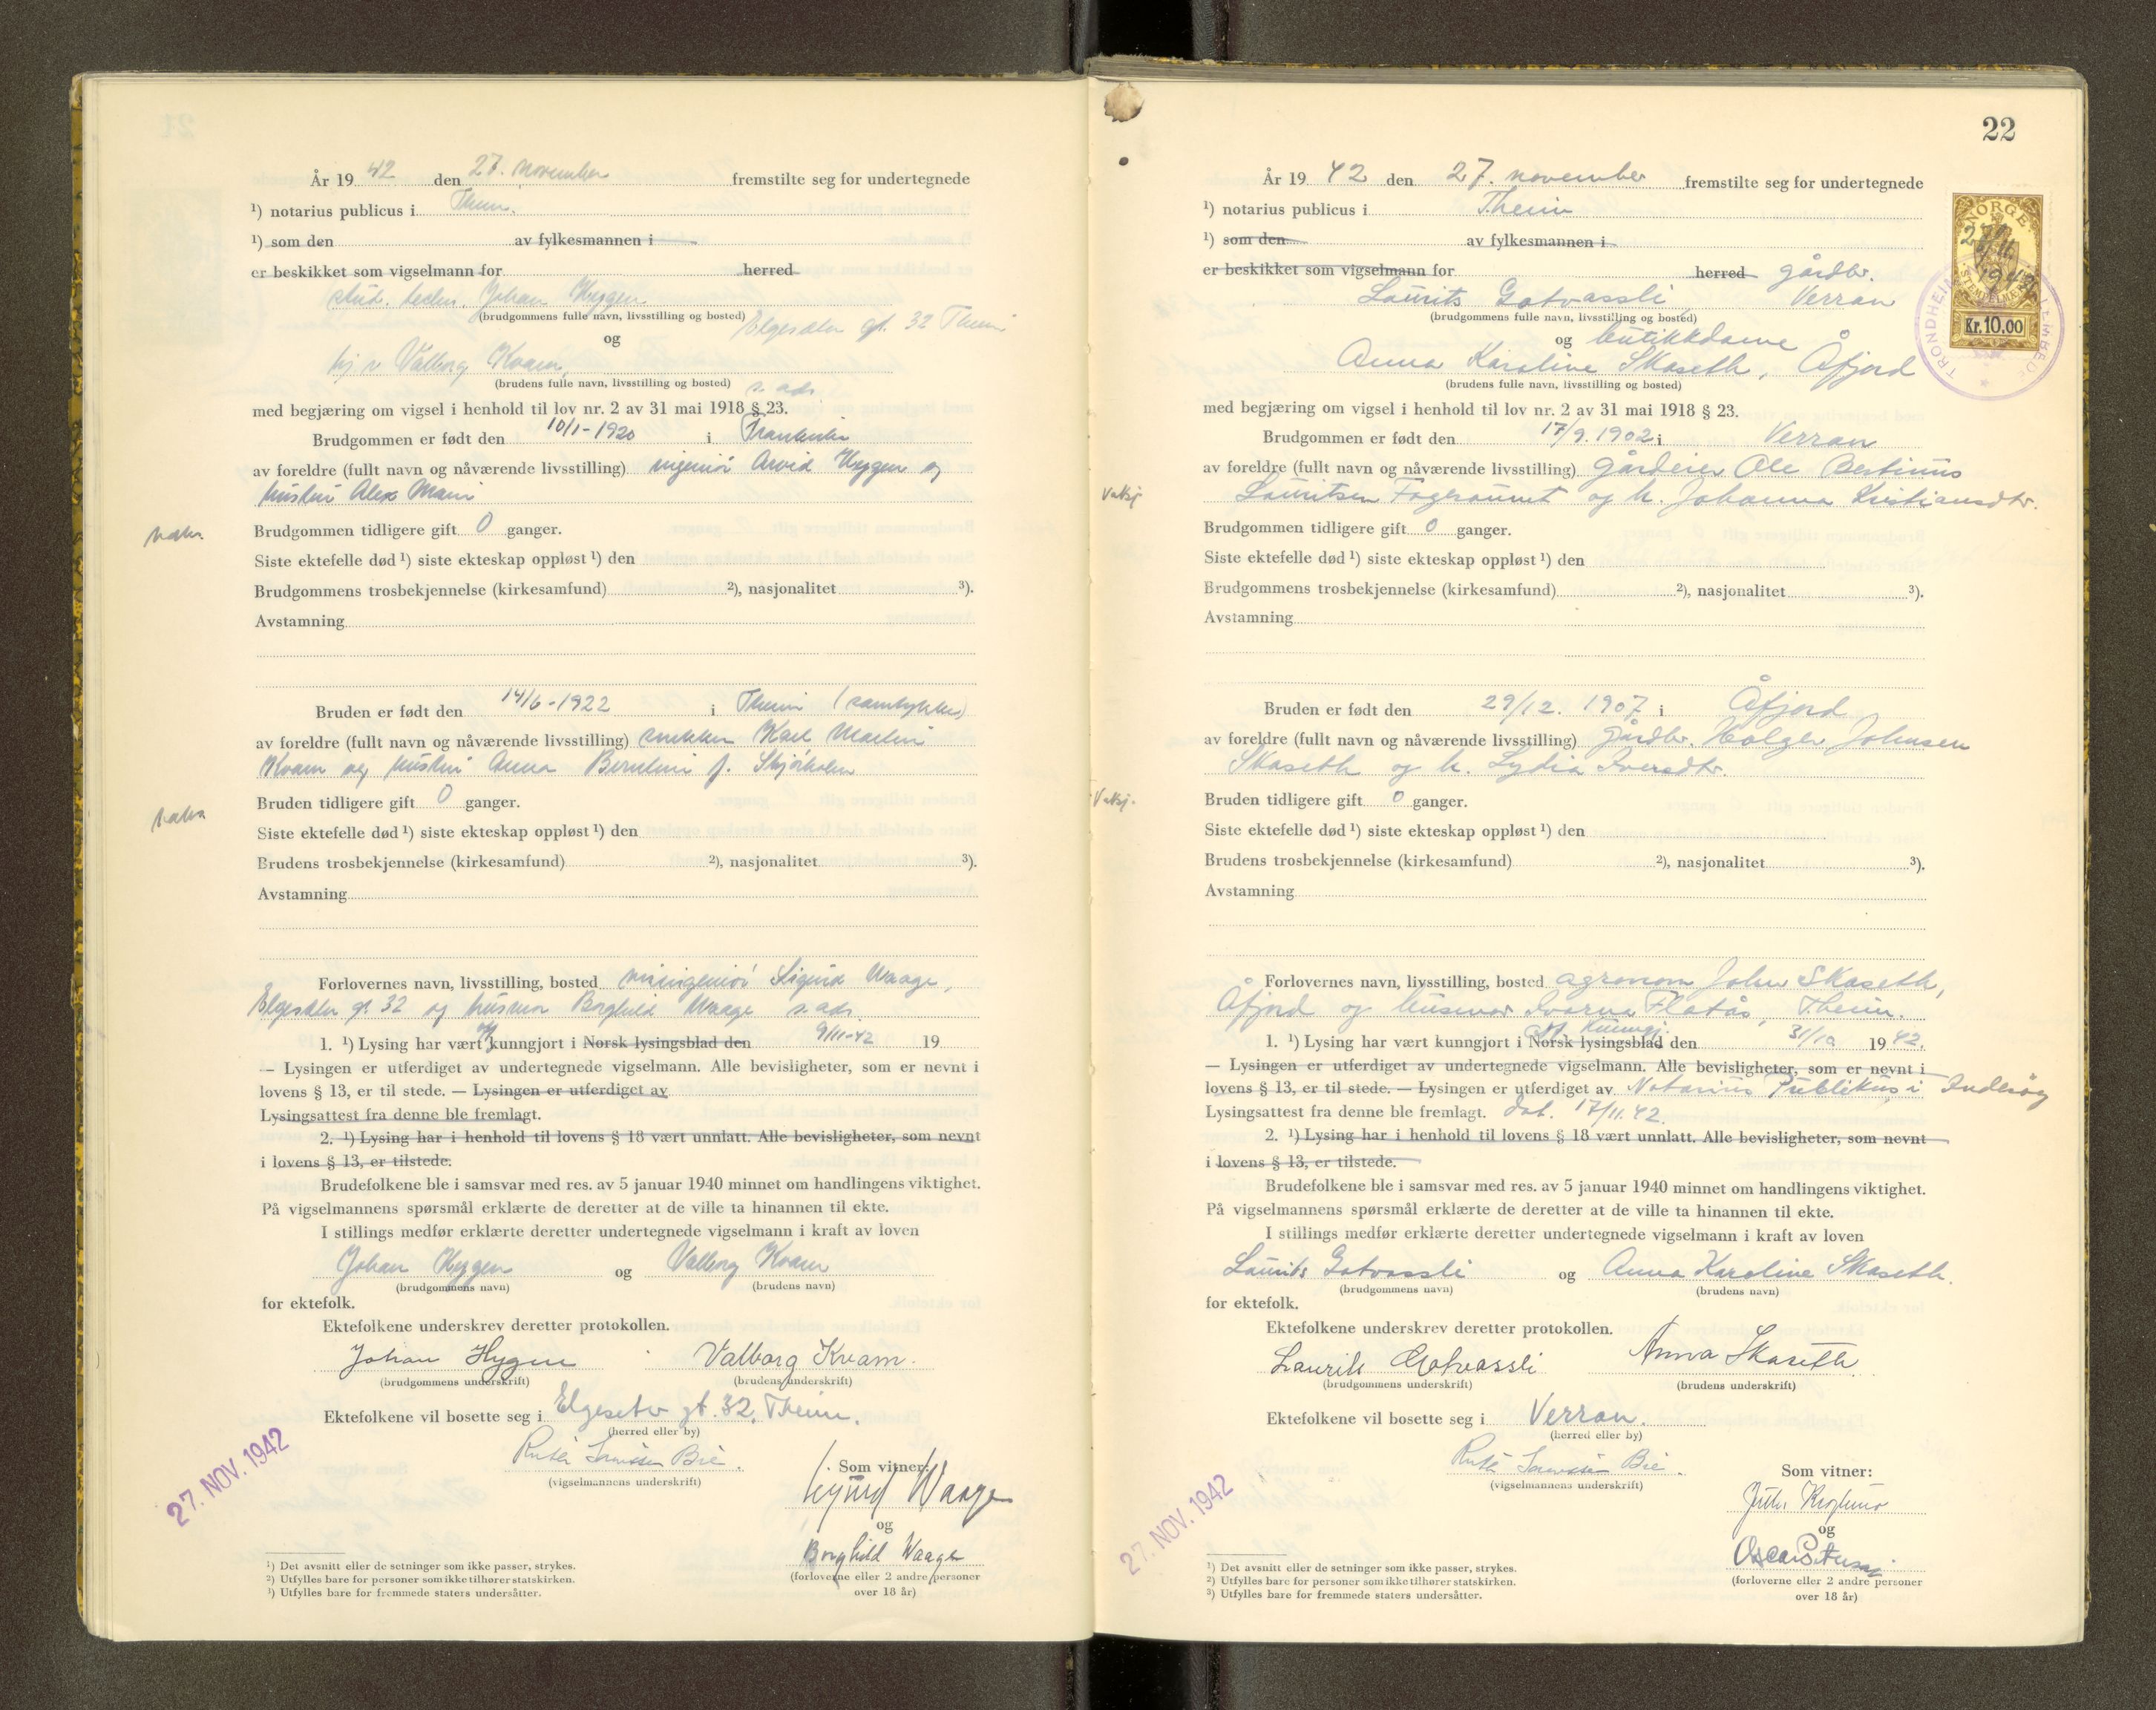 År 19 42 den 27. november fremstilte seg for undertegnede
¹) notarius publicus i Thm.
¹) som den av fylkesmannen i
er beskikket som vigselmann for herred
stud. techn. Johan Hygen
(brudgommens fulle navn, livsstilling og bosted) Elgeseter gt. 32 Thm
og
frk. Valborg Kvam,
(brudens fulle navn, livsstilling og bosted) s. ads.
med begjæring om vigsel i henhold til lov nr. 2 av 31 mai 1918 § 23.
Brudgommen er født den 10/1-1920 i
av foreldre (fullt navn og nåværende livsstilling) ingeniør Arvid Hygen og
hustru Alex Marie
Brudgommen tidligere gift 0 ganger.
Siste ektefelle død ¹) siste ekteskap oppløst ¹) den
Brudgommens trosbekjennelse (kirkesamfund) ²), nasjonalitet ³).
Avstamning
Bruden er født den 14/6-1922 i Thm (samtykke)
av foreldre (fullt navn og nåværende livsstilling) snekker Karl Martin
Kvam og hustru Anna f.
Bruden tidligere gift 0 ganger.
Siste ektefelle død ¹) siste ekteskap oppløst ¹) den
Brudens trosbekjennelse (kirkesamfund) ²), nasjonalitet ³).
Avstamning
Forlovernes navn, livsstilling, bosted Sigurd Waage,
Elgeseter gt. 32 og husmor Borghild Waage s. ads.
1. ¹) Lysing har vært kunngjort i Norsk lysingsblad den 9/11-42 19
— Lysingen er utferdiget av undertegnede vigselmann. Alle bevisligheter, som er nevnt i
lovens § 13, er til stede. — Lysingen er utferdiget av
Lysingsattest fra denne ble fremlagt.
2. ¹) Lysing har i henhold til lovens § 18 vært unnlatt. Alle bevisligheter, som nevnt
i lovens § 13, er tilstede.
Brudefolkene ble i samsvar med res. av 5 januar 1940 minnet om handlingens viktighet.
På vigselmannens spørsmål erklærte de deretter at de ville ta hinannen til ekte.
I stillings medfør erklærte deretter undertegnede vigselmann i kraft av loven
Johan Hygen og Valborg Kvam
(brudgommens navn) (brudens navn)
for ektefolk.
Ektefolkene underskrev deretter protokollen.
Johan Hygen Valborg Kvam.
(brudgommens underskrift) (brudens underskrift)
Ektefolkene vil bosette seg i Elgeseter gt. 32, Thm.
(herred eller by)
27. NOV. 1942
Bie.
(vigselmannens underskrift)
Som vitner:
Sigurd Waage
og
Borghild Waage
(forloverne eller 2 andre personer
over 18 år)
¹) Det avsnitt eller de setninger som ikke passer, strykes.
²) Utfylles bare for personer som ikke tilhører statskirken.
³) Utfylles bare for fremmede staters undersåtter.
22
År 19 42 den 27. november fremstilte seg for undertegnede
¹) notarius publicus i Thm
¹) som den av fylkesmannen i
er beskikket som vigselmann for herred gårdbr.
Laurits Gotvassli, Verran
(brudgommens fulle navn, livsstilling og bosted)
og butikkdame
Anna Karoline Skaseth, Åfjord
(brudens fulle navn, livsstilling og bosted)
NORGE
27/11. 1942
STEMPELMERKE
Kr. 10,00
TRONDHEIM
med begjæring om vigsel i henhold til lov nr. 2 av 31 mai 1918 § 23.
Brudgommen er født den 17/9. 1902 i Verran
av foreldre (fullt navn og nåværende livsstilling) gårdeier Ole Bertinus
Lauritsen og h. Johanna Kristiansdtr.
Brudgommen tidligere gift 0 ganger.
Siste ektefelle død ¹) siste ekteskap oppløst ¹) den
Brudgommens trosbekjennelse (kirkesamfund) ²), nasjonalitet ³).
Avstamning
Bruden er født den 29/12. 1907 i Åfjord
av foreldre (fullt navn og nåværende livsstilling) gårdbr. Holger Johnsen
Skaseth og h. Lydia Iversdtr.
Bruden tidligere gift 0 ganger.
Siste ektefelle død ¹) siste ekteskap oppløst ¹) den
Brudens trosbekjennelse (kirkesamfund) ²), nasjonalitet ³).
Avstamning
Forlovernes navn, livsstilling, bosted agronom John Skaseth,
Åfjord og husmor Flatås, Thm.
1. ¹) Lysing har vært kunngjort i Norsk lysingsblad den 31/10 19 42.
— Lysingen er utferdiget av undertegnede vigselmann. Alle bevisligheter, som er nevnt i
lovens § 13, er til stede. — Lysingen er utferdiget av Notarius Publikus i Inderøy
Lysingsattest fra denne ble fremlagt. dat. 17/11. 42.
2. ¹) Lysing har i henhold til lovens § 18 vært unnlatt. Alle bevisligheter, som nevnt
i lovens § 13, er tilstede.
Brudefolkene ble i samsvar med res. av 5 januar 1940 minnet om handlingens viktighet.
På vigselmannens spørsmål erklærte de deretter at de ville ta hinannen til ekte.
I stillings medfør erklærte deretter undertegnede vigselmann i kraft av loven
Laurits Gotvassli og Anna Karoline Skaseth.
(brudgommens navn) (brudens navn)
for ektefolk.
Ektefolkene underskrev deretter protokollen.
Laurits Gotvassli Anna Skaseth.
(brudgommens underskrift) (brudens underskrift)
Ektefolkene vil bosette seg i Verran.
(herred eller by)
27. NOV. 1942
Bie.
(vigselmannens underskrift)
Som vitner:
og
(forloverne eller 2 andre personer
over 18 år)
¹) Det avsnitt eller de setninger som ikke passer, strykes.
²) Utfylles bare for personer som ikke tilhører statskirken.
³) Utfylles bare for fremmede staters undersåtter.